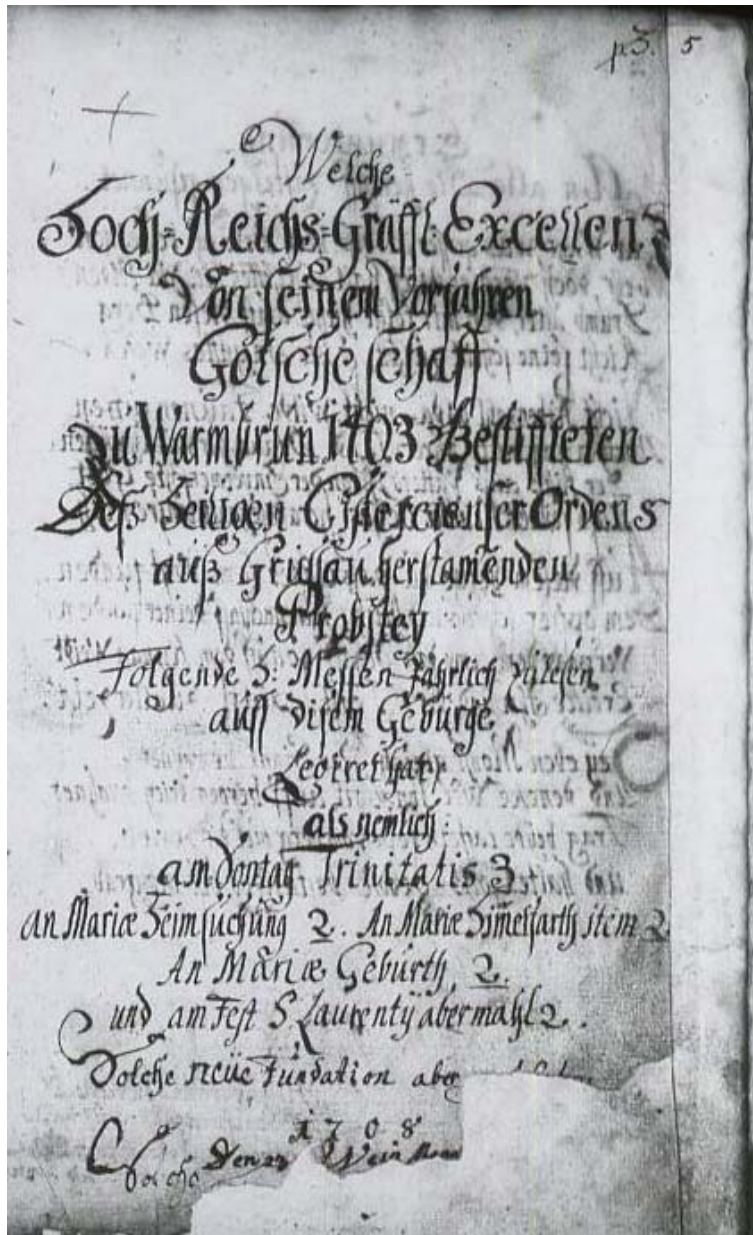 p3. 5
Welche
Hoch=Reichs=Gräffl: Excellenz
Von seinem Vorfahren
Gotsche schaff
Zu Warmbrun 1403 Bestiffteten
Deß Heiligen Cistercienser Ordens
auß Grissau herstam̄enden
Probstey
Folgende H: Messen Jährlich zulesen
auff disem Gebürge
legiret hat
als nemlich:
am Sontag Trinitatis 3
an Mariæ Heimsuchung 2. An Mariæ Him̄elfarth item 2
An Mariæ Geburth 2.
und am Fest S Laurentÿ abermahl 2.
Solche neüe Fundation aber
1708
Den 22 Wein